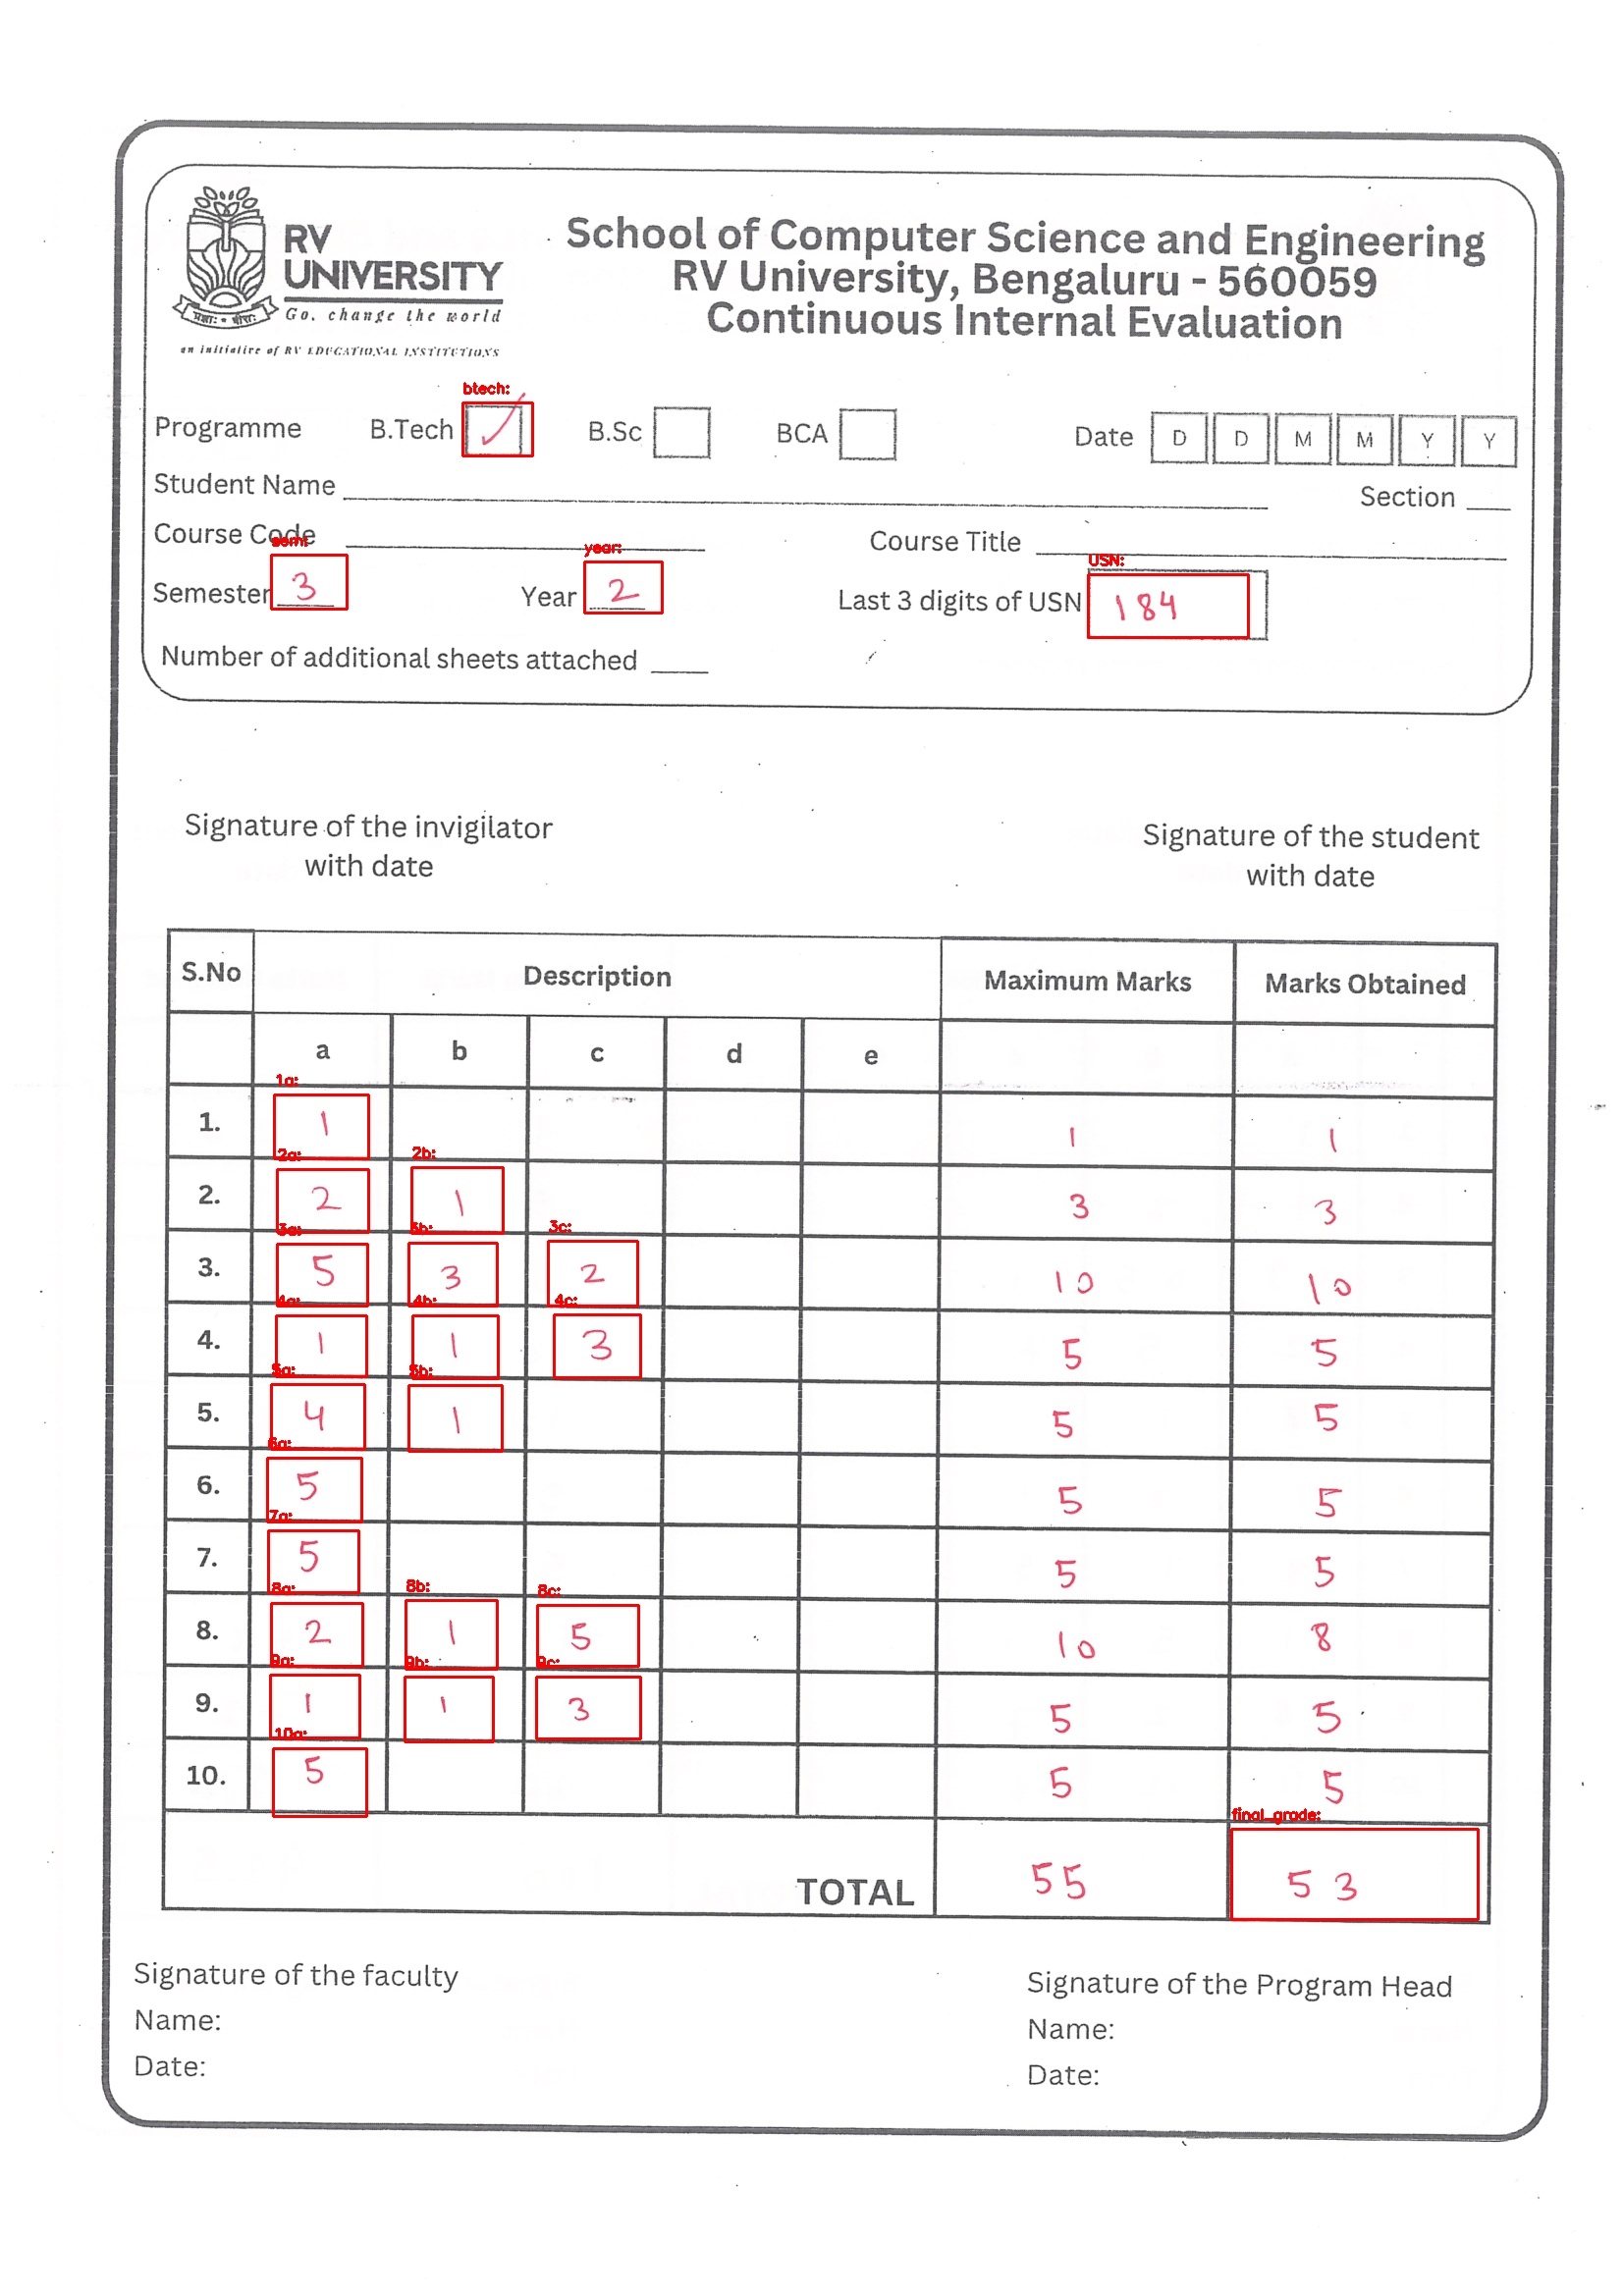 RV
UNIVERSITY
Go, change the world
an initiative of RV EDUCATIONAL INSTITUTIONS
School of Computer Science and Engineering
RV University, Bengaluru - 560059
Continuous Internal Evaluation
btech:
Programme B.Tech B.Sc BCA Date D D M M Y Y
Student Name Section
Course Code Course Title
sem: year: USN:
Semester 3 Year 2 Last 3 digits of USN 184
Number of additional sheets attached
Signature of the invigilator
with date
Signature of the student
with date
S.No Description Maximum Marks Marks Obtained
a b c d e
1a:
1. 1 1 1
2a: 2b:
2. 2 1 3 3
3a: 3b: 3c:
3. 5 3 2 10 10
4a: 4b: 4c:
4. 1 1 3 5 5
5a: 5b:
5. 4 1 5 5
6a:
6. 5 5 5
7a:
7. 5 5 5
8a: 8b: 8c:
8. 2 1 5 10 8
9a: 9b: 9c:
9. 1 1 3 5 5
10a:
10. 5 5 5
final_grade:
TOTAL 55 53
Signature of the faculty
Name:
Date:
Signature of the Program Head
Name:
Date: